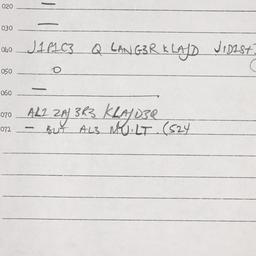 020 —
030 —
040 J1P1C3 Q LANG3R KLAJD J1D1S+
050 O
060 —
070 AL2 2AJ 3R3 KLAJD3R
072 — BUT AL3 MU·LT. (S24